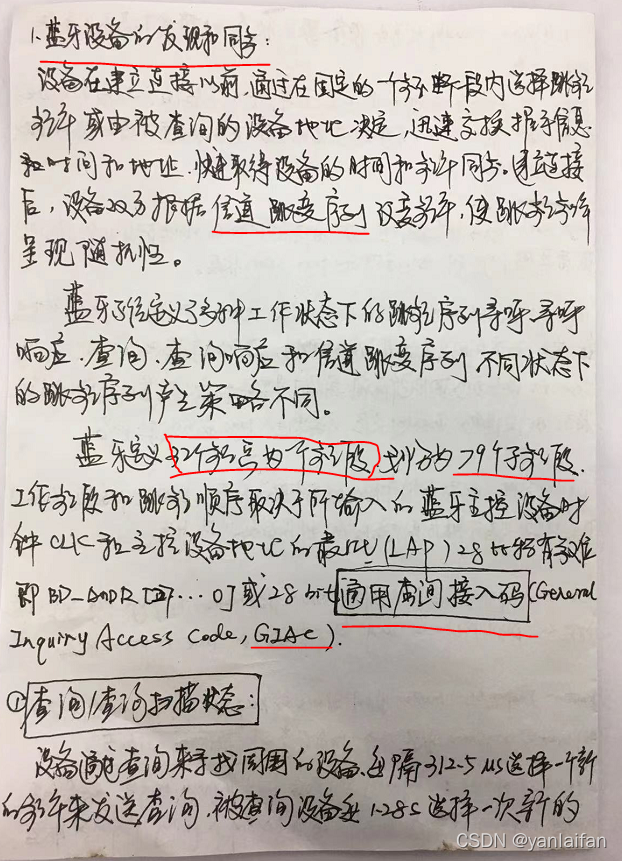 1.蓝牙设备的发现和同步:
设备在建立连接以前,通过在固定的一个频段内选择跳频
频率或由被查询的设备地址决定,迅速交换握手信息
和时间和地址,快速取得设备的时间和频率同步。建立连接
后,设备双方根据信道跳变序列改变频率,使跳频频率
呈现随机性。
蓝牙系统定义了多种工作状态下的跳频序列寻呼、寻呼
响应、查询、查询响应和信道跳变序列不同状态下
的跳频序列产生策略不同。
蓝牙定义32个频点为一个频段,划分为79个子频段.
工作频段和跳频顺序取决于所输入的蓝牙主控设备时
钟CLK和主控设备地址的最低(LAP)28bit
即BD_ADDR[27...0]或28bit通用查询接入码(General
Inquiry Access Code, GIAC).
①查询/查询扫描状态:
设备通过查询来寻找周围的设备,每隔312.5μs选择一个新
的频率来发送查询,被查询设备每1.28s选择一次新的
CSDN @yanlaifan